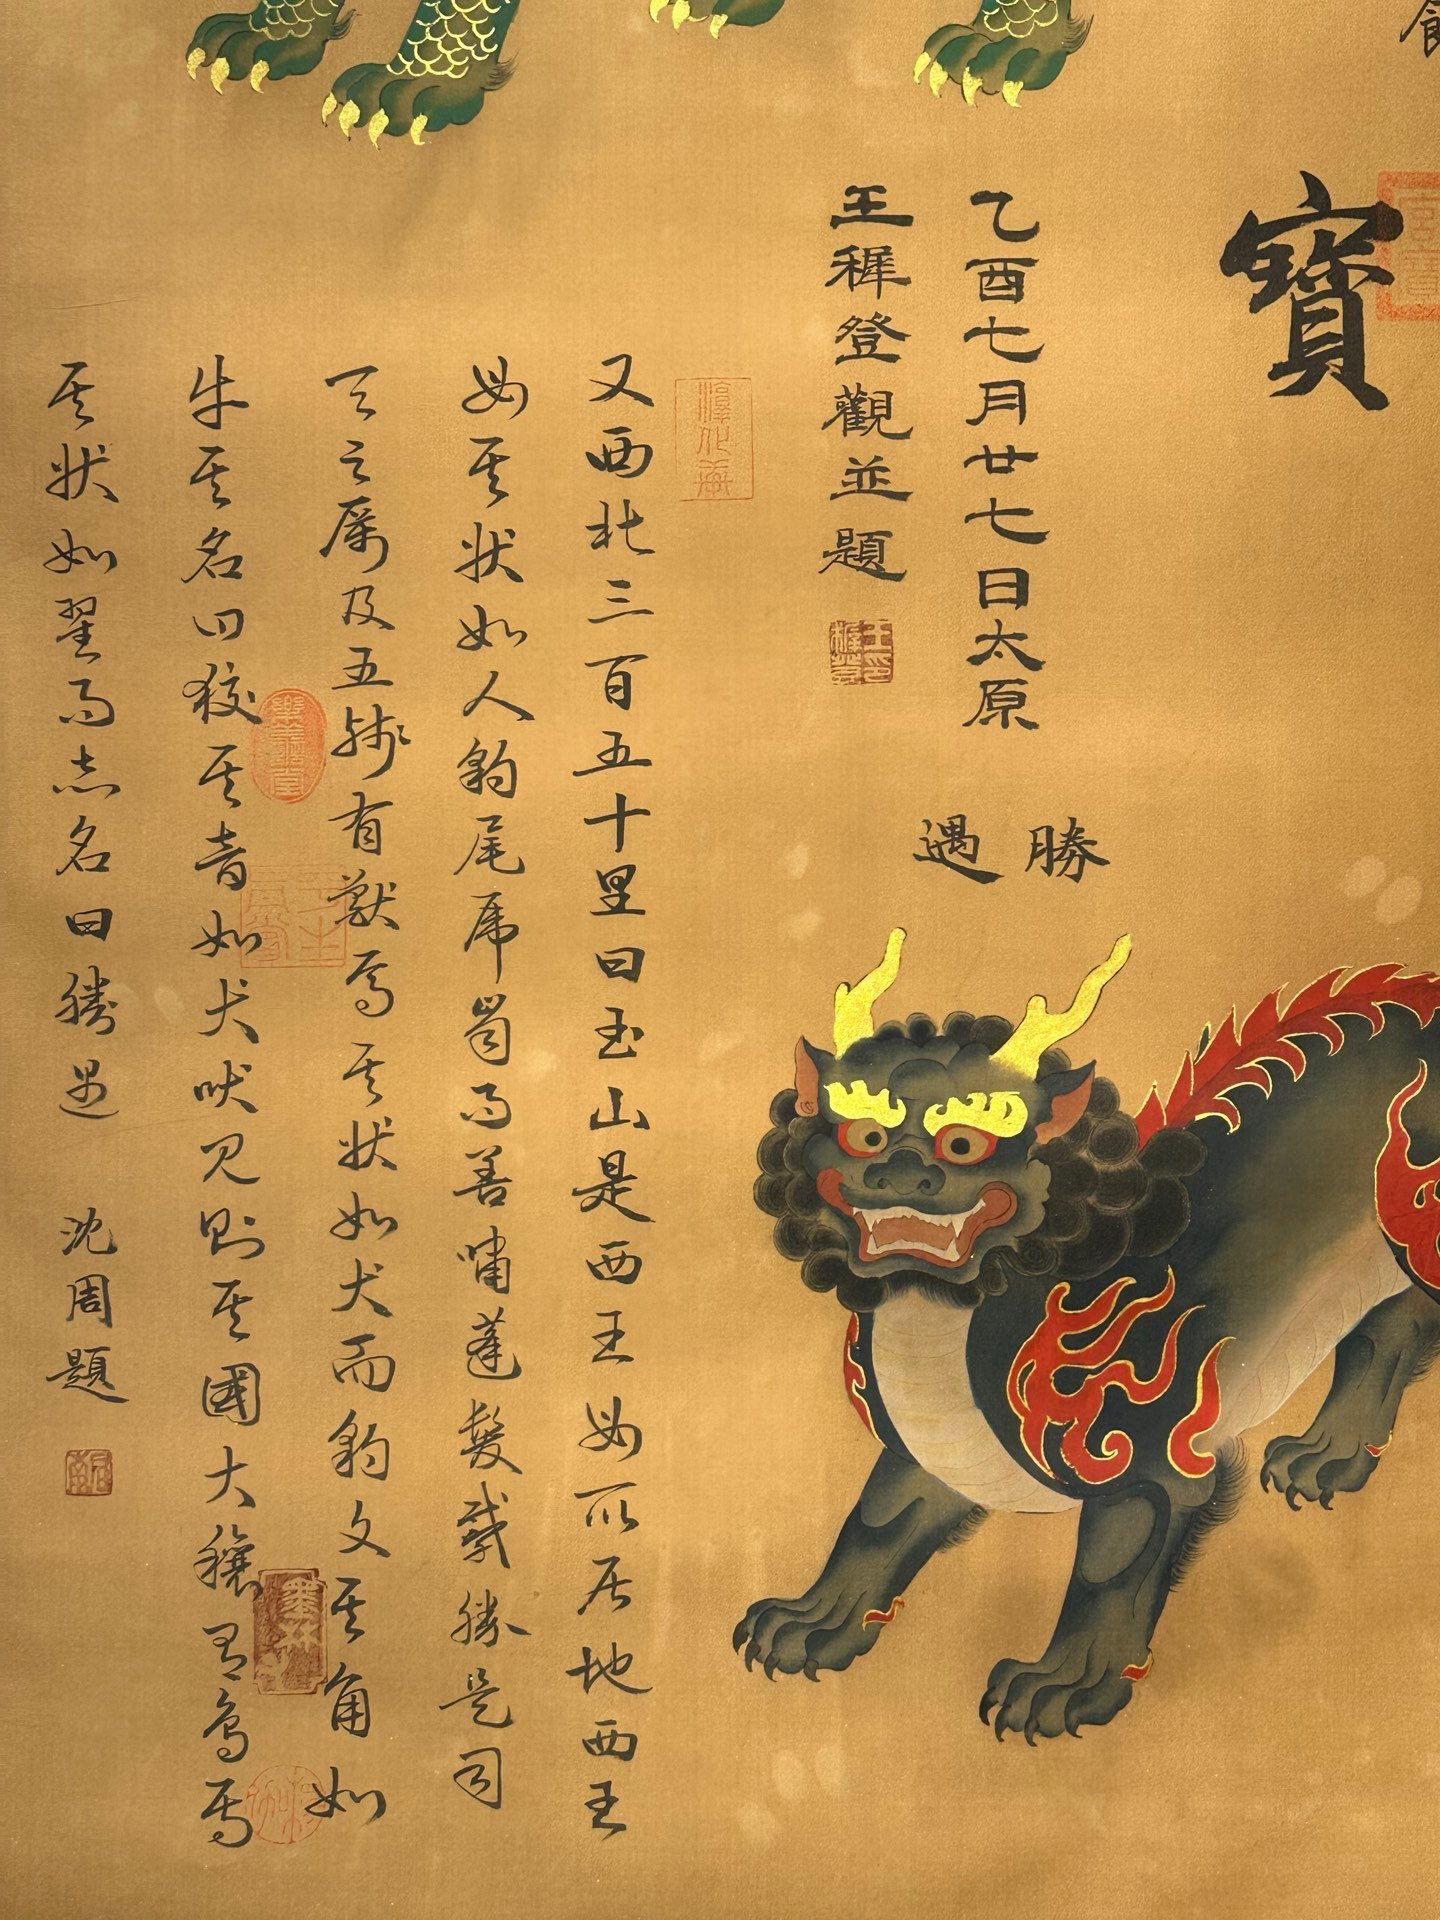 寶
乙酉七月廿七日太原
王穉登觀並題
勝遇
又西北三百五十里曰玉山是西王母所居地西王
母其状如人豹尾虎齒而善嘯蓬髮戴勝是司
天之厲及五殘有獸焉其状如犬而豹文其角如
牛其名曰狡其音如犬吠見則其國大穰有鳥焉
其状如翟而赤名曰勝遇 沈周題